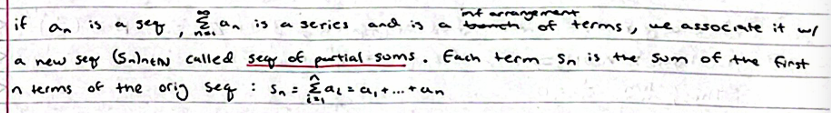 if aₙ is a seq, ∑ₙ₌₁^∞ aₙ is a series and is a inf arrangement of terms, we associate it w/
a new seq (Sₙ)ₙ∈ℕ called seq of partial sums. Each term Sₙ is the sum of the first
n terms of the orig seq : Sₙ = ∑ᵢ₌₁^n aᵢ = a₁ + ... + aₙ